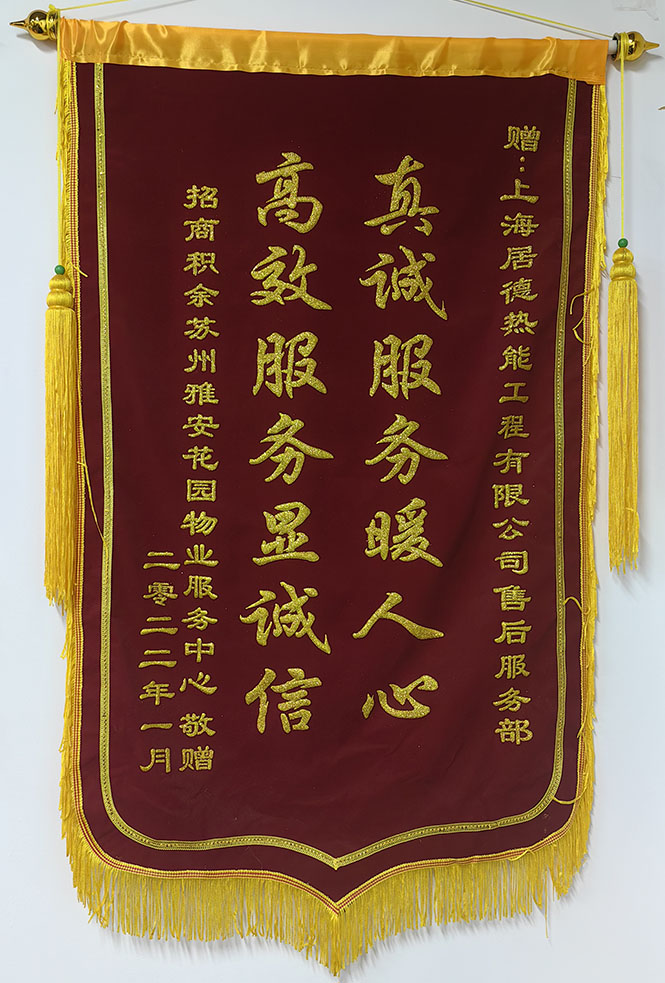 赠：上海居德热能工程有限公司售后服务部
真诚服务暖人心
高效服务显诚信
招商积余苏州雅安花园物业服务中心 敬赠
二零二二年一月